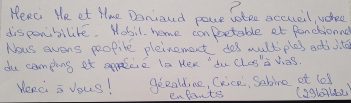 Merci Mr et Mme Daniaud pour votre accueil, votre
disponibilité. Mobil-home confortable et fonctionnel
Nous avons profité pleinement des multiples activités
du camping et apprécié la Mer "du Clos" à Vias.
Merci à vous! Géraldine, Crice, Sabine et les
enfants